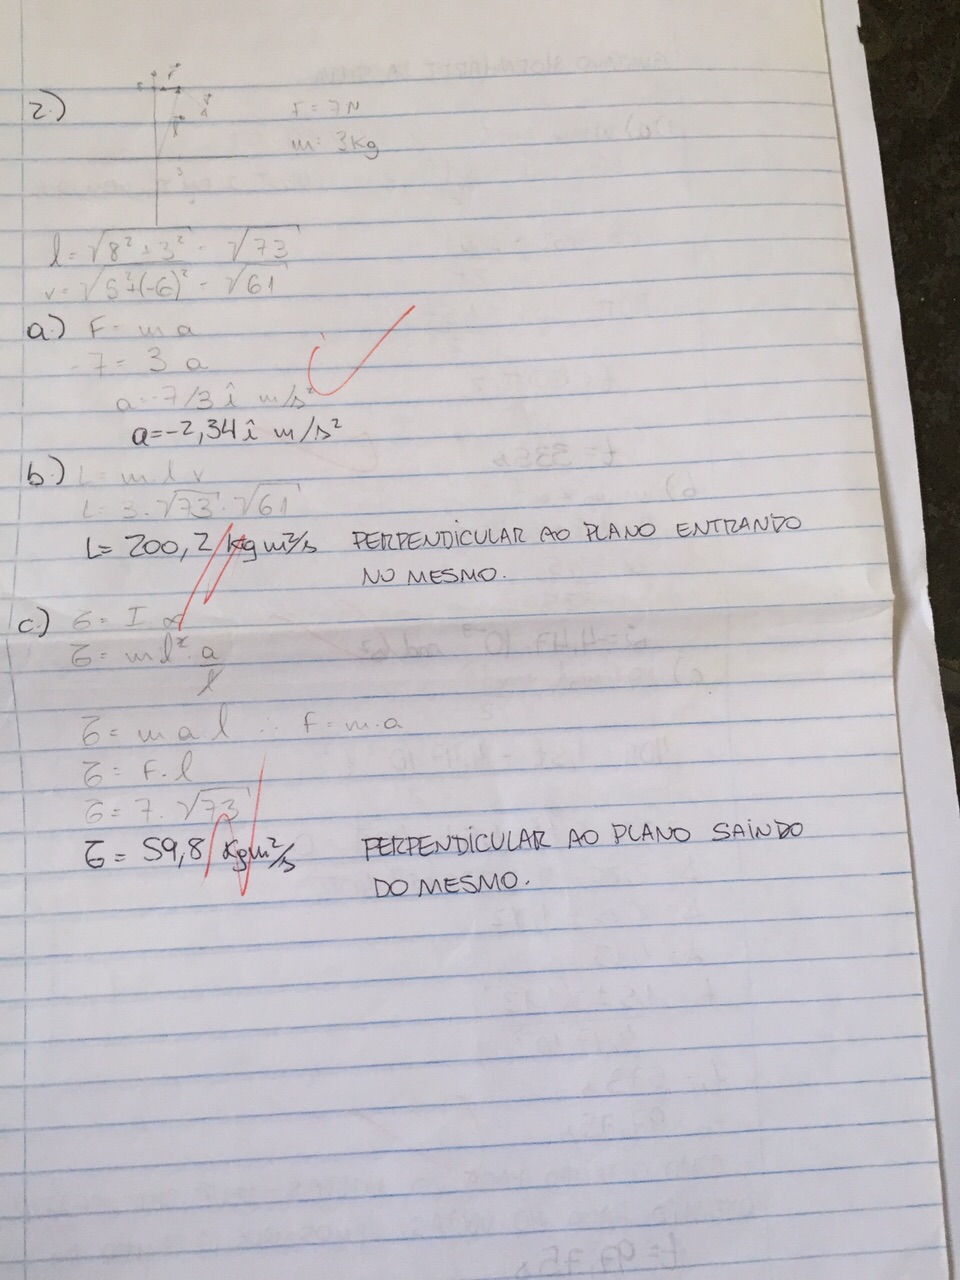 2.)
F = 7N
m: 3Kg
l = √8² + 3² = √73
v = √5²+(-6)² = √61
a.) F = m a
-7 = 3 a
a = -7/3 î m/s²
a = -2,34 î m/s²
b.) L = m.l.v
L = 3.√73.√61
L = 200,2 kgm²/s PERPENDICULAR AO PLANO ENTRANDO
NO MESMO.
c.) σ = I α
σ = ml² . a/l
σ = m a l ∴ F = m.a
σ = F.l
σ = 7.√73
σ = 59,8 kgm²/s PERPENDICULAR AO PLANO SAINDO
DO MESMO.